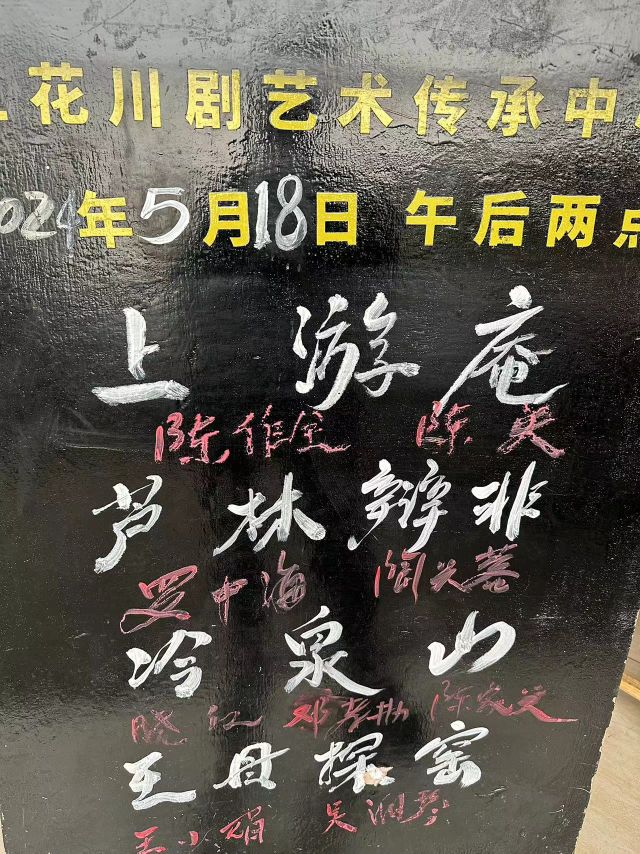 花川剧艺术传承中
2024年5月18日 午后两点
上游庵
陈作全 陈英
芦林辩非
罗中海
冷泉山
晓红
王母探窑
王小娟 吴湘琴